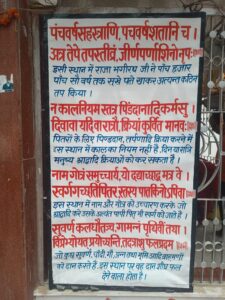 पंचवर्षसहस्त्राणि, पंचवर्षशतानि च ।
अत्र तेपे तपस्तीव्रं, जीर्णपर्णाशिनोनृपः
इसी स्थान में राजा भगीरथ जी ने पांच हजार
पांच सौ वर्ष तक सूखे पत्ते खाकर अत्यन्त कठिन
तप किया ।
न कालनियमस्तत्र पिंडदानादिकर्मसु ।
दिवावा यदिवारात्रौ, क्रियां कुर्वित मानवः
पितरों के लिए पिण्डदान, तर्पणादि क्रिया करने में
इस स्थान में काल का नियम नहीं है. दिन या रात्रि में
मनुष्य श्राद्धादि क्रियाओं को कर सकता है ।
नाम गोत्रं समुच्चार्य, यो दद्याच्छ्राद्ध मत्र वै ।
स्वर्गगच्छतिपितरस्तस्य
इस स्थान में नाम और गौत्र को उच्चारण करके जो
श्राद्धादि करे उसके अत्यंत पापी पितृ भी स्वर्ग को जाते हैं
सुवर्णं कलधौतंच, गामन्नं पृथिवीं तथा ।
विप्रेभ्योयत् प्रयच्छन्ति, तदत्राशु फलप्रदम्
जो कुछ सुवर्ण, चाँदी, गौ, अन्न तथा भूमि आदि ब्राह्मणों
को दान करते हैं. इस स्थान पर वह दान शीघ्र फल
देने वाला होता है ।